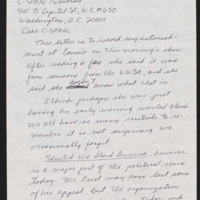 C-SPAN Networks
400 N. Capitol St., N.W. #650
Washington, D.C. 20001
Dear C-SPAN,
This letter is to record my astonishment
at Connie on this morning's show
after reading a fax she said it was
from someone from the UWSA, and she
said she didn't know what that is.
I think perhaps she was just
having an early morning mental block.
We all have so many initials to remember
it is not surprising we
occasionally forget.
United We Stand America, however,
is a major part of the political scene
today. Mr. Perot may have lost some
of his appeal, but the organization
today, and